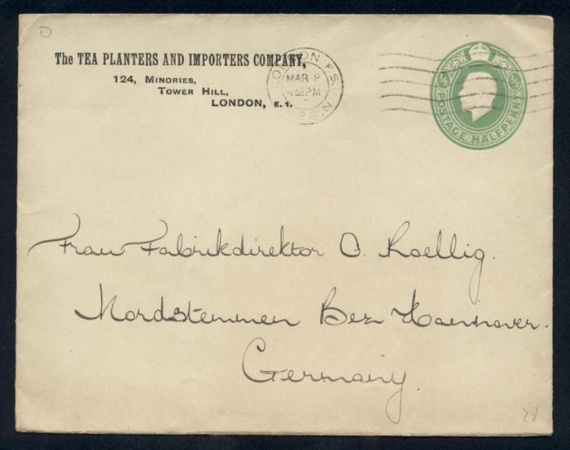 The TEA PLANTERS AND IMPORTERS COMPANY,
124, MINORIES,
TOWER HILL,
LONDON, E.1.
LONDON F.S.
MAR 8
PM
POSTAGE HALFPENNY
Frau Fabrikdirektor O. Roellig.
Nordstemmen Bez Hannover.
Germany.